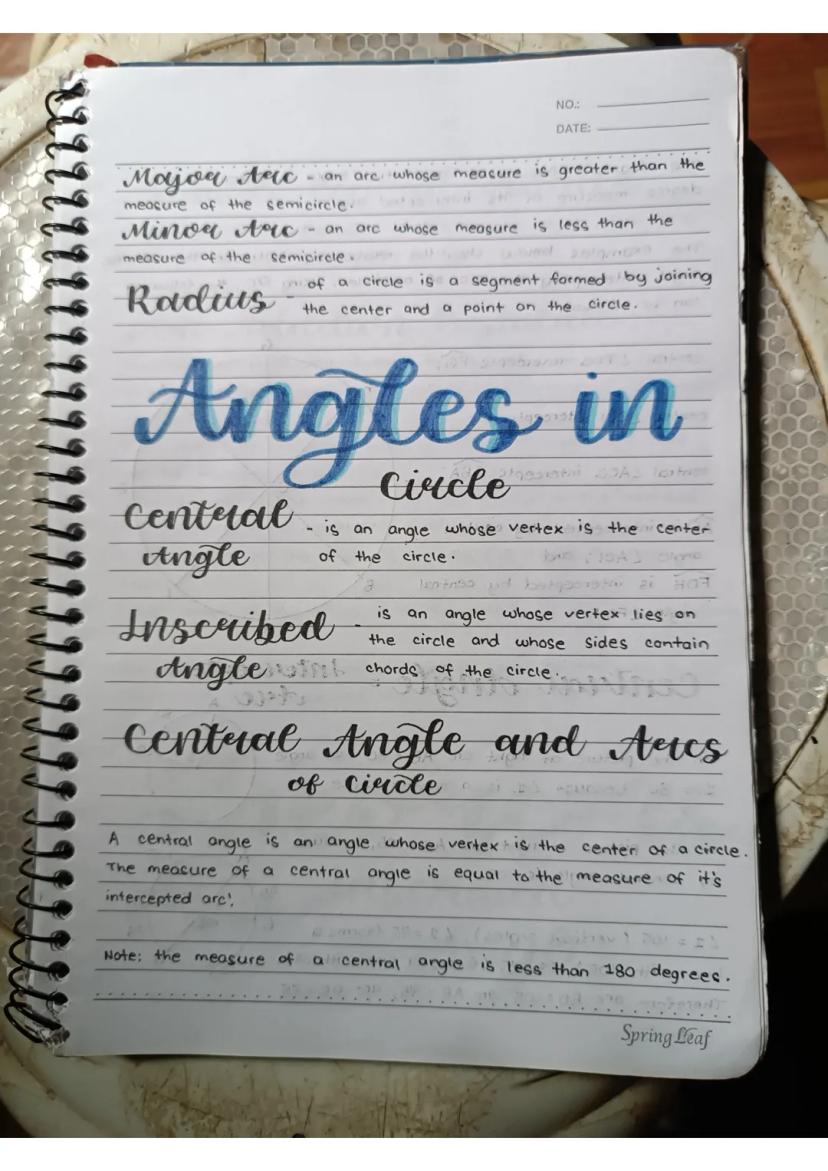 NO.:
DATE:
Major Arc - an arc whose measure is greater than the
measure of the semicircle.
Minor Arc - an arc whose measure is less than the
measure of the semicircle.
Radius - of a circle is a segment formed by joining
the center and a point on the circle.
Angles in
Circle
Central Angle - is an angle whose vertex is the center
of the circle.
Inscribed Angle - is an angle whose vertex lies on
the circle and whose sides contain
chords of the circle.
Central Angle and Arcs
of Circle
A central angle is an angle whose vertex is the center of a circle.
The measure of a central angle is equal to the measure of it's
intercepted arc'.
Note: the measure of a central angle is less than 180 degrees.
Spring Leaf